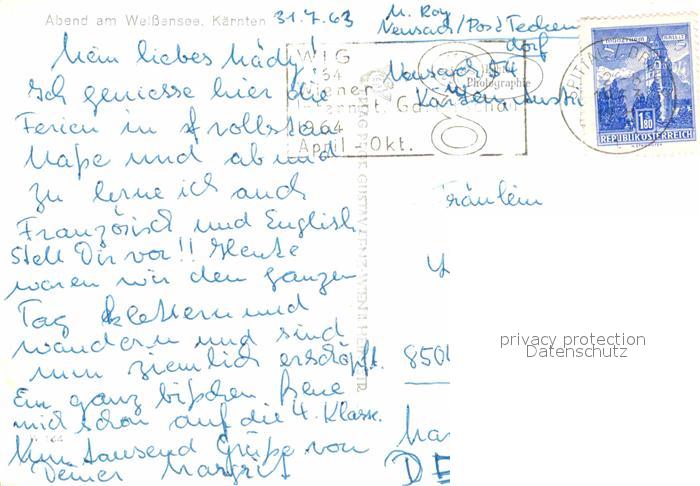 Abend am Weißensee, Kärnten
31.7.63
M. Roy
Neusach/Post Techen
dorf
Neusach 54
Kärnten Austri
Mein liebes Mädy!
Ich geniesse hier die
Ferien in vollstem
Maße und ab und
zu lerne ich auch
Französisch und English.
Stell Dir vor!! Heute
waren wir den ganzen
Tag klettern und
wandern und sind
nun ziemlich erschöpft.
Ein ganz bißchen freue
mich schon auf die 4. Klasse.
Um tausend Grüße von
Deiner Margrit
WIG
64
Wiener
Internat. Gartenschau
1964
April - Okt.
Photographie
1 S 80
REPUBLIK ÖSTERREICH
Fräulein
850
privacy protection
Datenschutz
Ma
DE